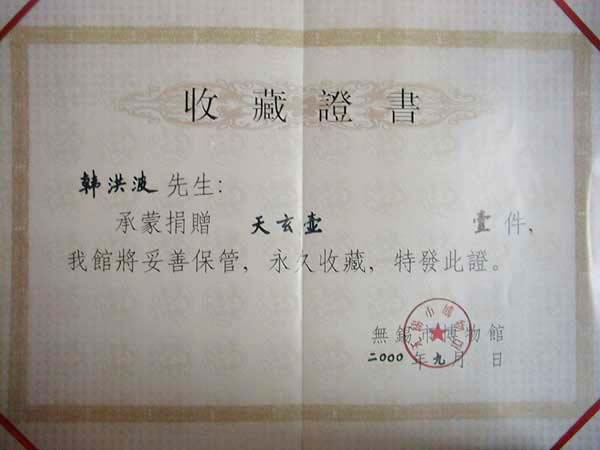 收藏證書
韩洪波先生:
承蒙捐贈 天玄壶 壹件,
我館將妥善保管, 永久收藏, 特發此證。
無錫市博物館
二000年九月 日